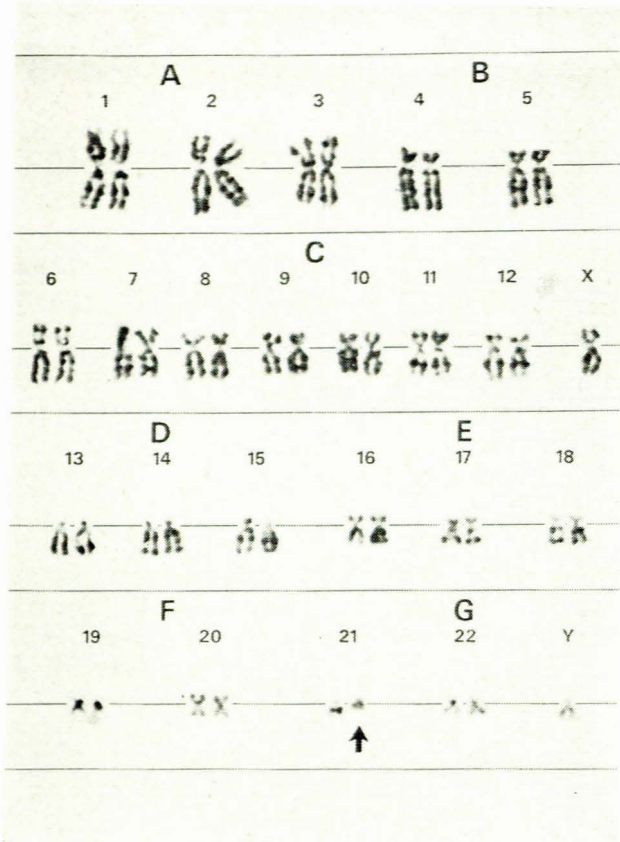 A B
1 2 3 4 5
C
6 7 8 9 10 11 12 X
D E
13 14 15 16 17 18
F G
19 20 21 22 Y